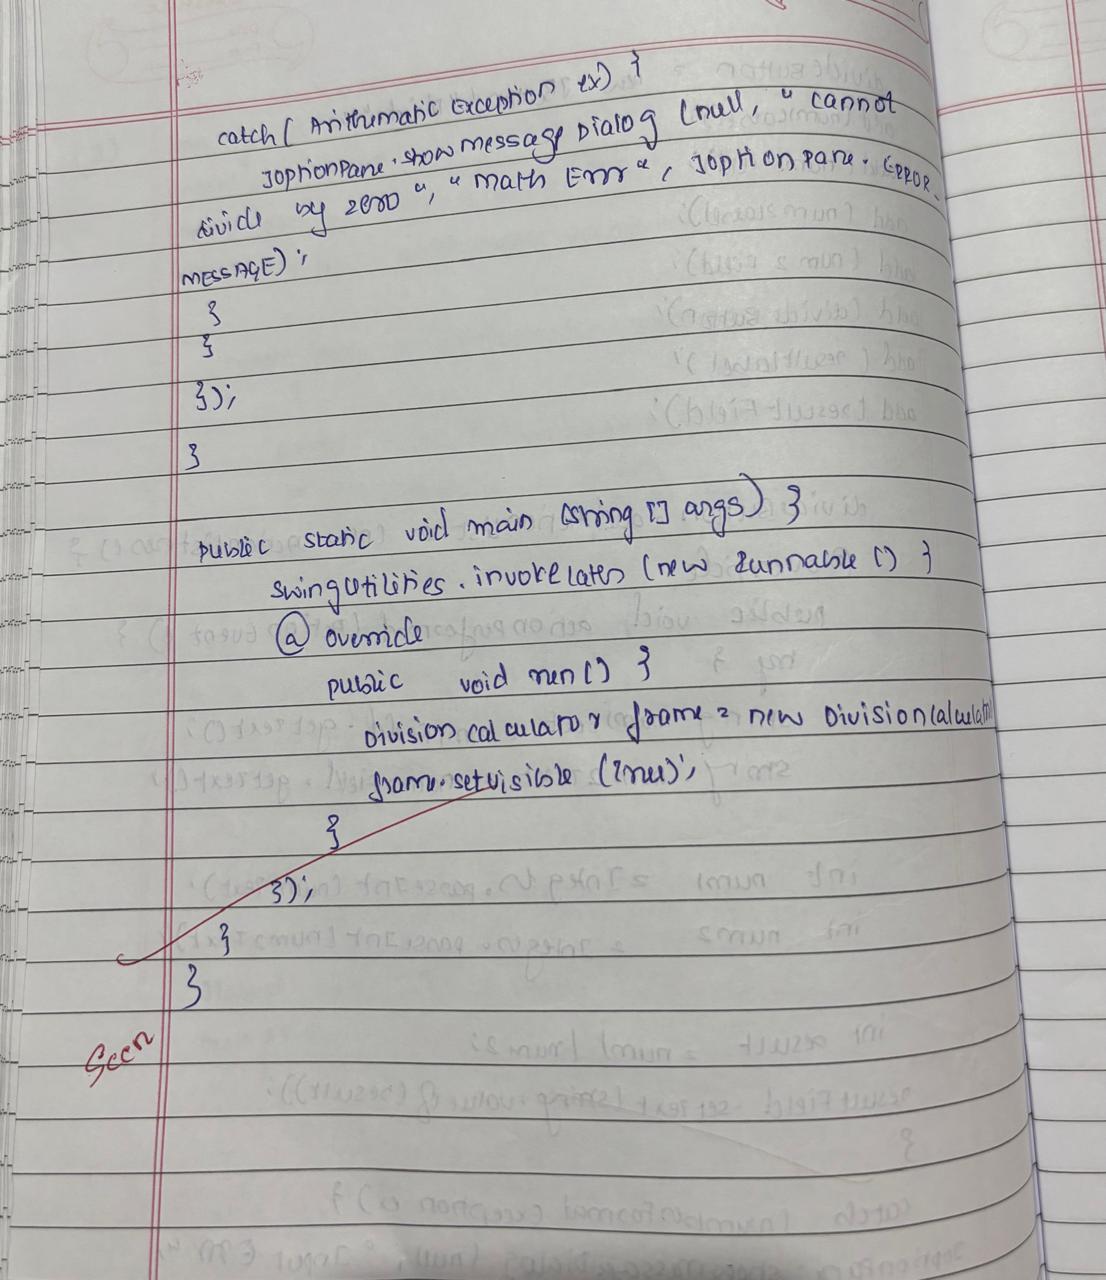 catch ( Arithematic Exception ex) }
JoptionPane.show message Dialog (null, " cannot
divide by zero ", " Math Err ", Joption pane. ERROR_
MESSAGE) ;
}
}
});
}
public static void main (string [] args) }
swing utilities . invoke later (new Runnable () }
@ override
public void run() }
Division calculator frame = new Division calculator
frame.setvisible (True);
}
});
}
}
Seen